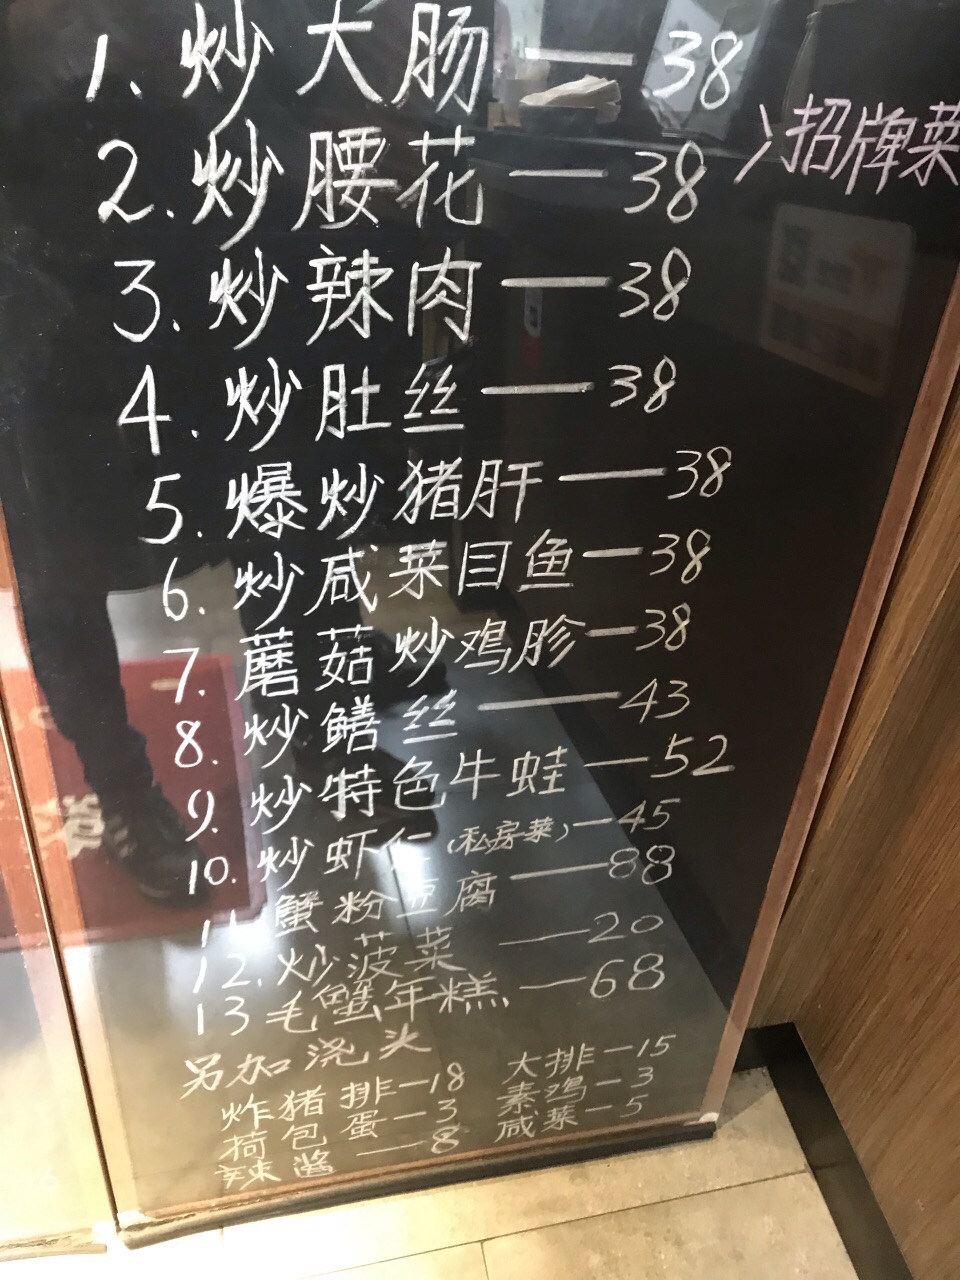 1. 炒大肠 — 38
2. 炒腰花 — 38 }招牌菜
3. 炒辣肉 — 38
4. 炒肚丝 — 38
5. 爆炒猪肝 — 38
6. 炒咸菜目鱼 — 38
7. 蘑菇炒鸡胗 — 38
8. 炒鳝丝 — 43
9. 炒特色牛蛙 — 52
10. 炒虾仁(私房菜) — 45
11. 蟹粉豆腐 — 88
12. 炒菠菜 — 20
13 毛蟹年糕. — 68
另加浇头
炸猪排 — 18 大排 — 15
荷包蛋 — 3 素鸡 — 3
辣酱 — 8 咸菜 — 5